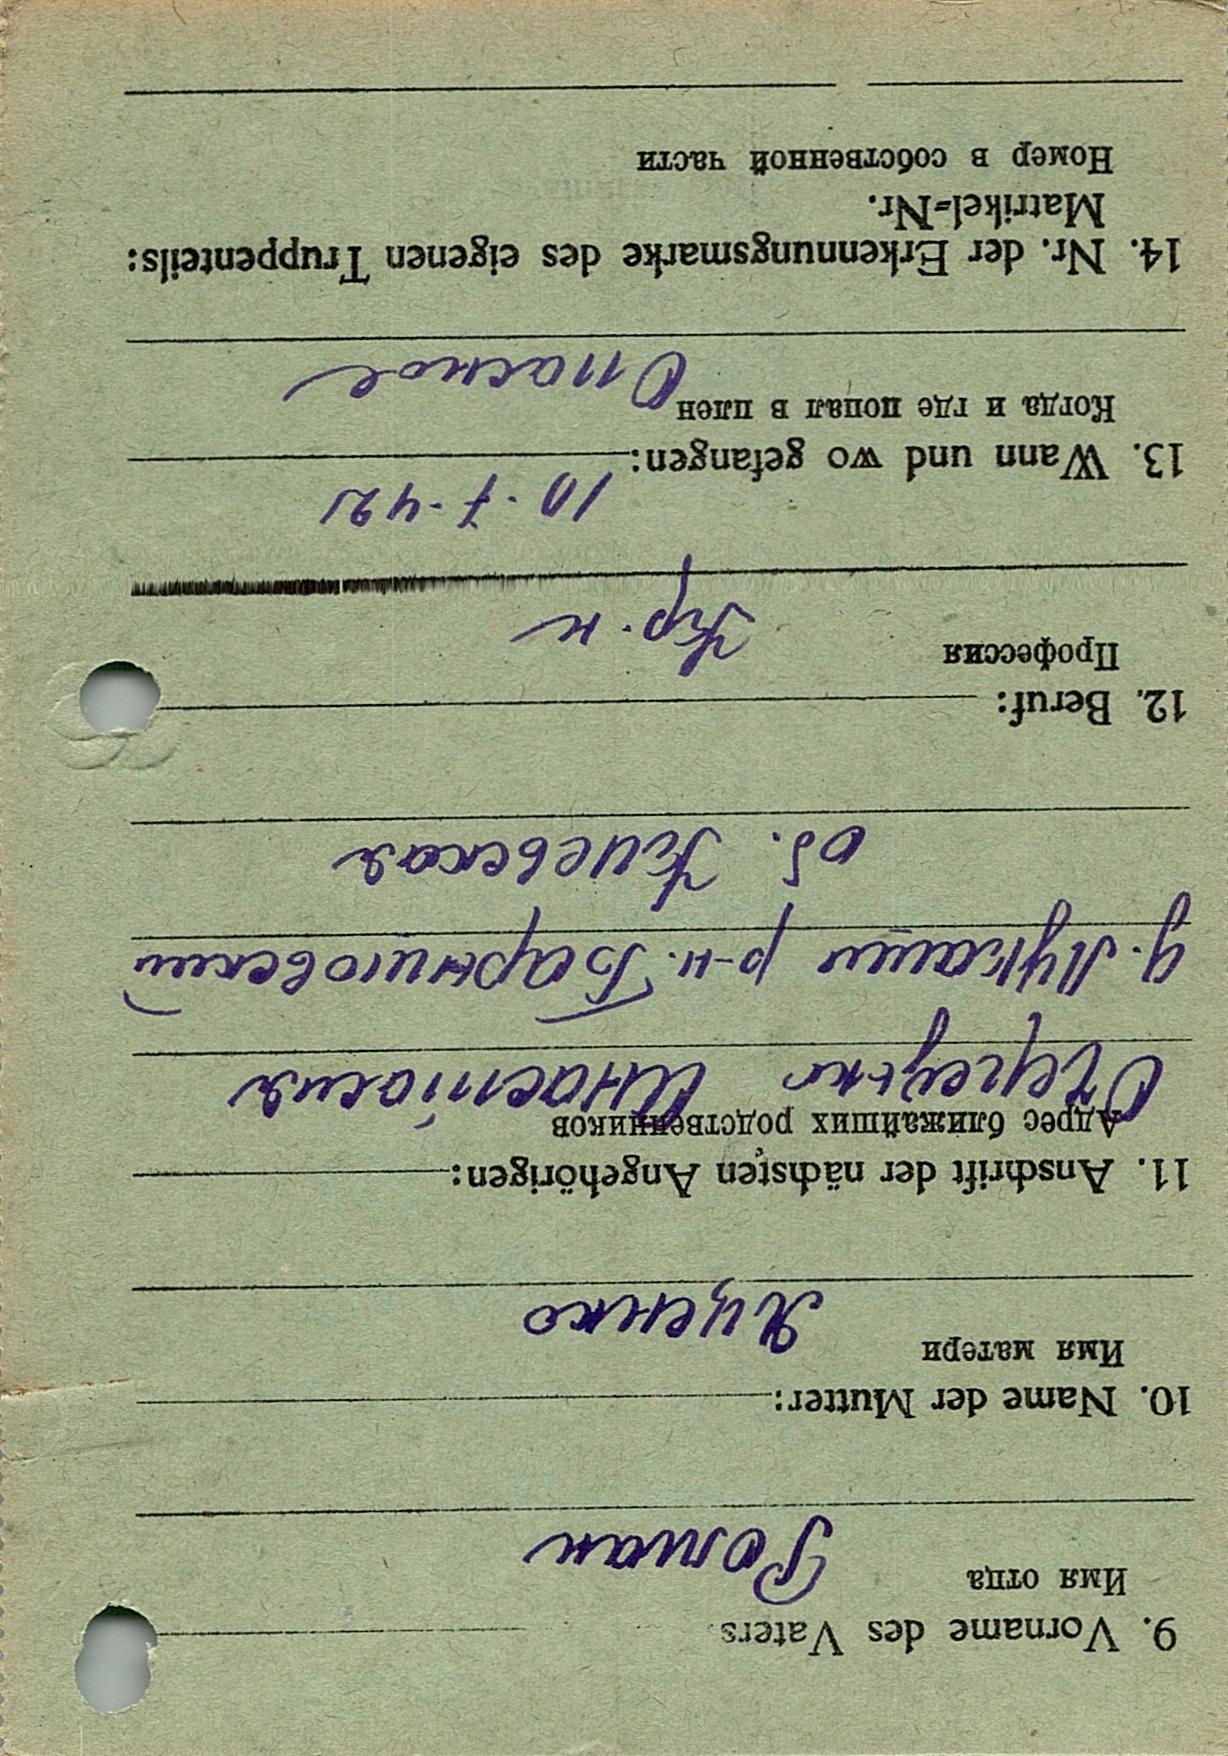 9. Vorname des Vaters
Имя отца Роман
10. Name der Mutter:
Имя матери Яценко
11. Anschrift der nächsten Angehörigen:
Адрес ближайших родственников
Анастасия
д. р-н. Барышовский
об. Киевская
12. Beruf:
Профессия Кр-н
13. Wann und wo gefangen: 10-7-42
Когда и где попал в плен Опасное
14. Nr. der Erkennungsmarke des eigenen Truppenteils:
Matrikel-Nr.
Номер в собственной части